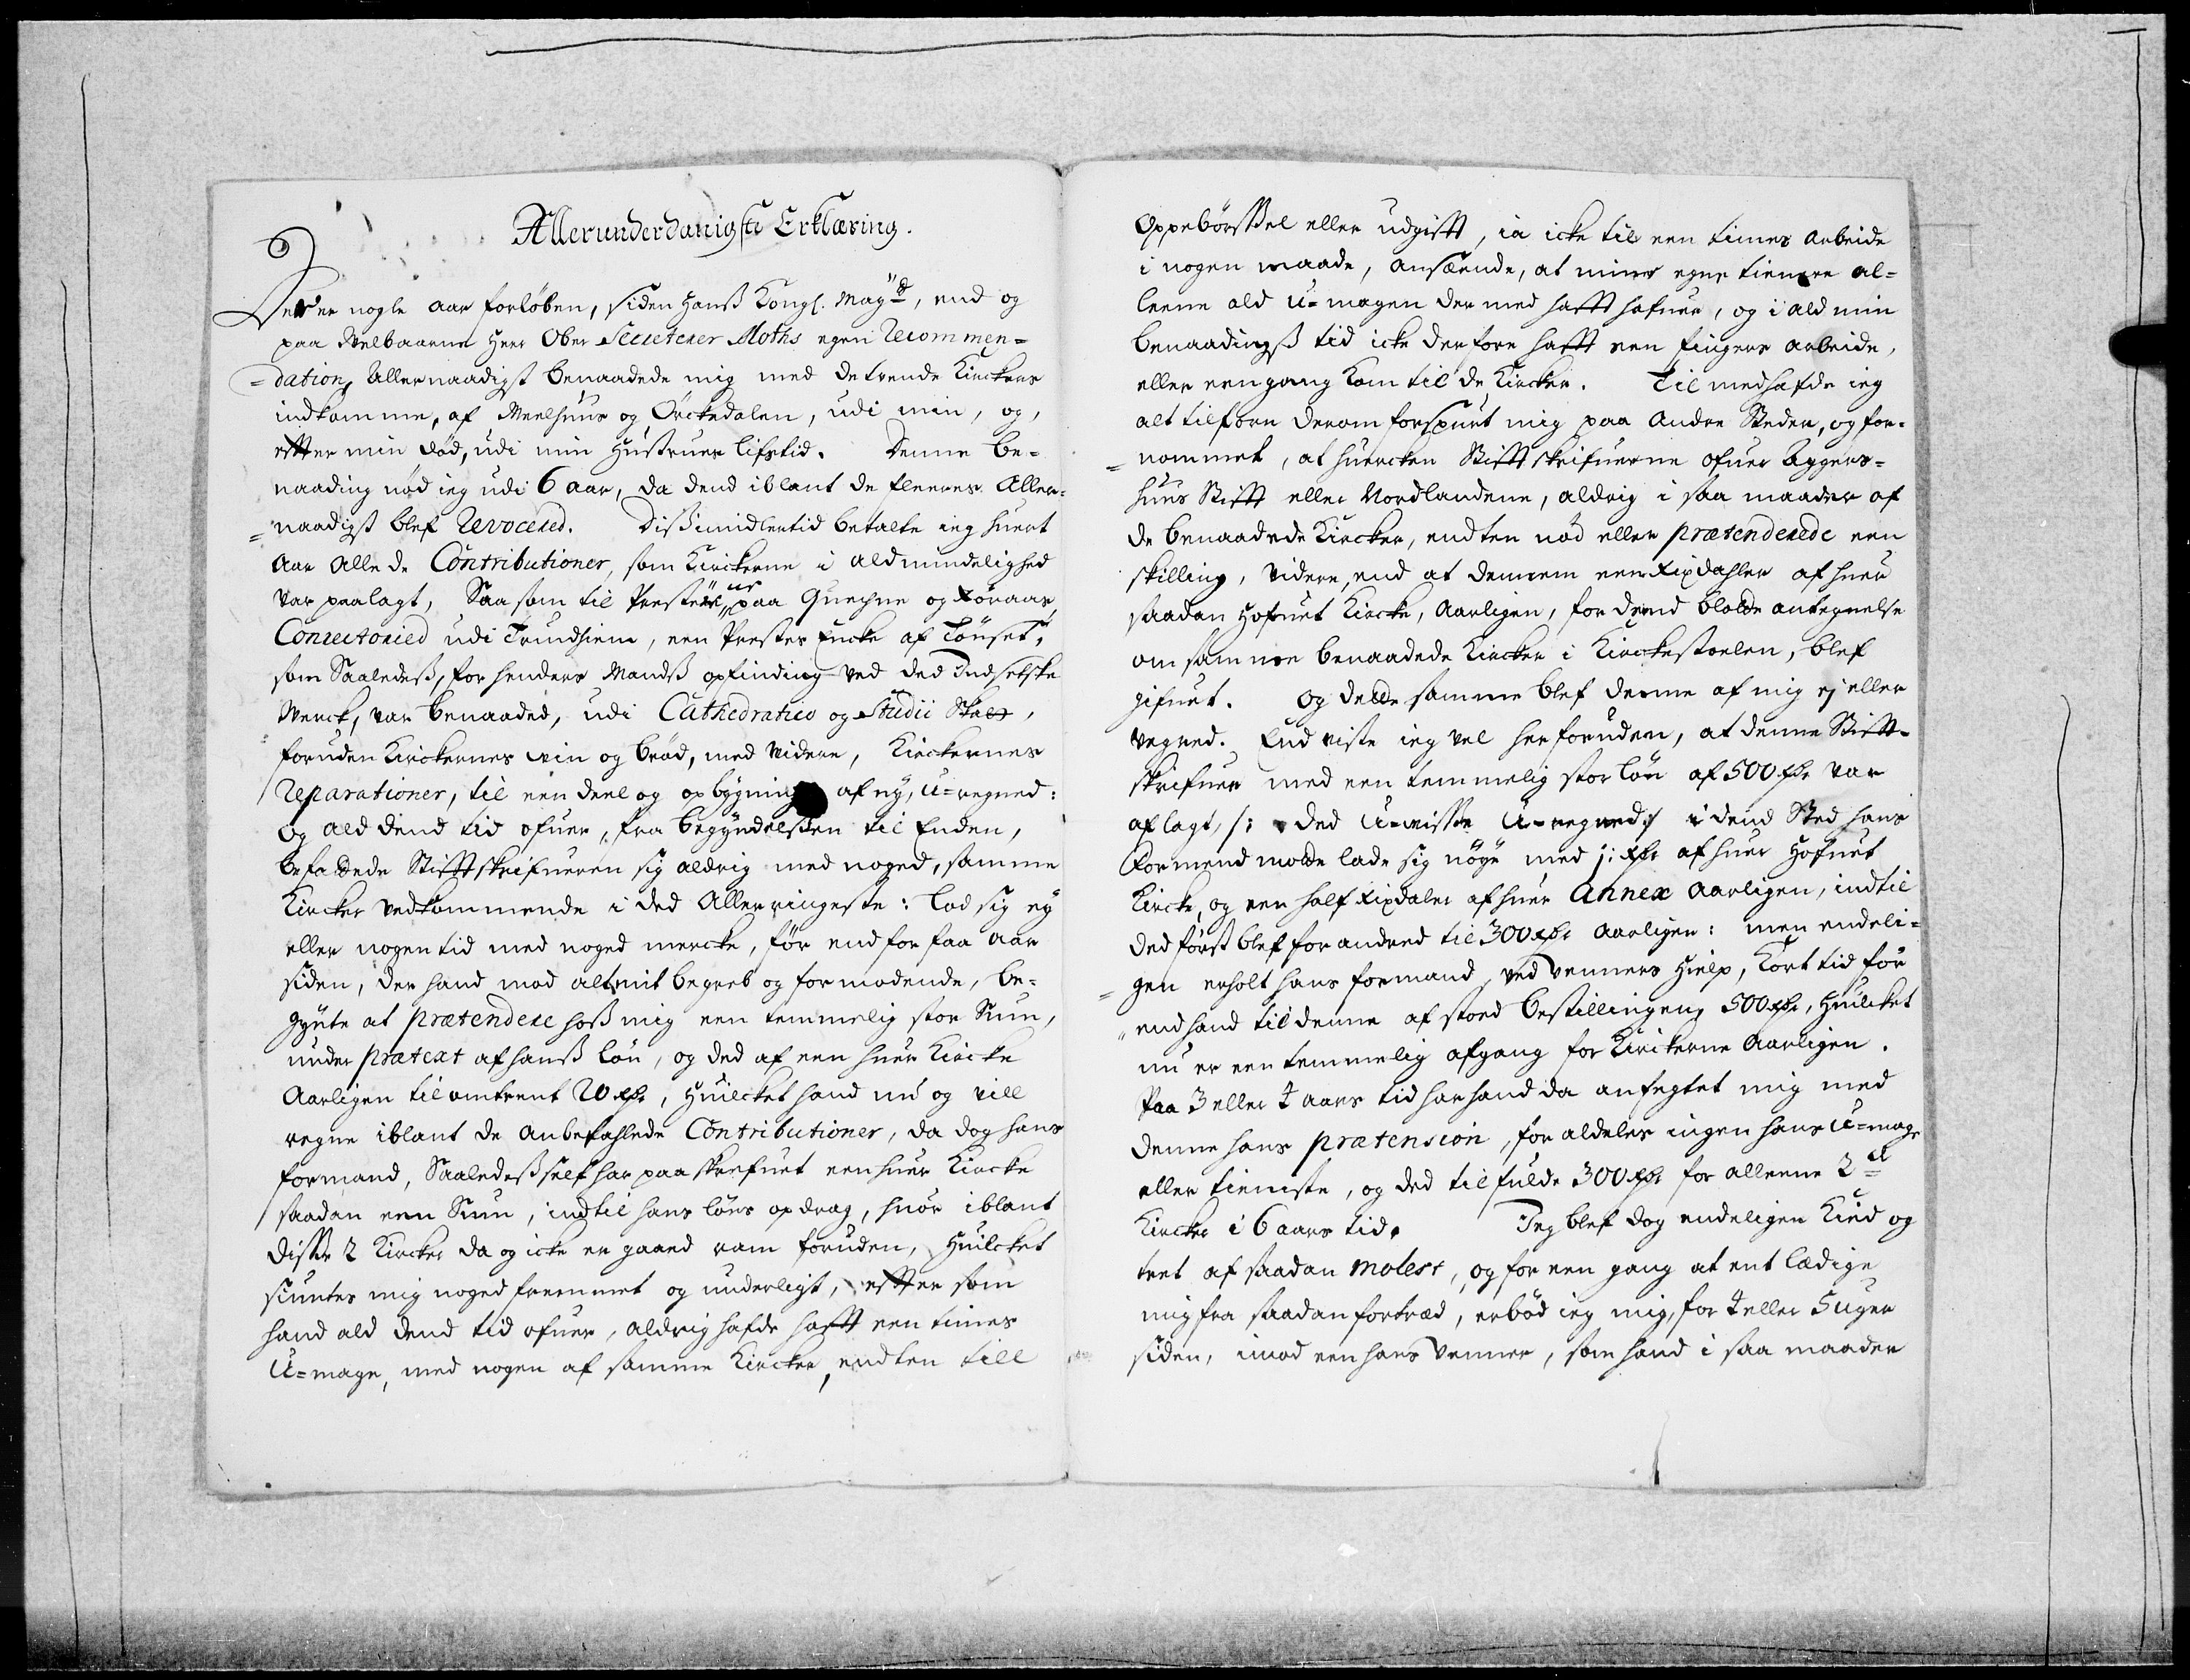 Allerunderdanigste Erklæring.
Det er nogle aar forløben, siden Hanß Kongl. May:d, end og
paa Welbaarne Herr Ober Secreterer Moths egen Recommen=
=dation, allernaadigst benaadede mig med de trende Kirckers
indkomme, af Meelhuus og Örckedalen, udi min, og,
effter min död, udi min Hustruer lifstid. Denne be=
naading nöd ieg udi 6 aar, da dend iblant de fleeres Aller=
=naadigst blef Revocered. Dißimidlertid betalte ieg huert
Aar alle de Contributioner, som Kirckerne i aldmindelighed
var paalagt, Saa som til Præste paa Quechne og Röraas,
Conrectoried udi Trundhiem, een Prestes Encke af Tönset,
som Saaledeß, for hendes Mandß opfinding ved ded Indsetske
Werck, var benaaded, udi Cathedratico og Studii Skat,
foruden Kirckernes vin og bröd, med videre, Kirckernes
Reparationer, til een deel og opbygning af ny, U=regned:
og ald dend tid ofuer, fra begyndelßen til Enden,
befattede Stifftskrifueren sig aldrig med noged, samme
Kircker vedkommende i ded Allerringeste: lod sig ey
eller nogen tid med noged mercke, för end for faa aar
siden, der hand mod alt mit begreb og formodende, be=
gynte at prætendere hoß mig een temmelig stor Sum,
under prætext af hanß lön, og ded af een huer Kircke
Aarligen til omtrent 20 Rdr, Huilcket hand nu og vill
regne iblant de anbefahlede Contributioner, da dog hans
formand, Saaledeß self har paaskrefuet een huer Kircke
saadan een Sum, indtil hans löns opdrag, huor iblant
disse 2 Kircker da og icke er gaaed ram foruden, Huilcket
siuntes mig noged fremmet og underligt, effter som
hand ald dend tid ofuer, aldrig hafde hafft een times
U=mage, med nogen af samme Kircker, endten till
Oppebörssel eller udgifft, ia icke til een times arbeide
i nogen maade, anseende, at mine egne tienere al=
leene ald U=magen der med hafft hafuer, og i ald min
benaadingß tid icke derfore hafft een fingers arbeide,
eller een gang kom til de Kircker. Til med hafde ieg
alt tilforn derom forspurt mig paa andre Steder, og for=
=nommet, at huercken Stifftskrifuerne ofuer Aggers=
huus Stifft eller Nordlandene, aldrig i saa maader af
de benaadede Kircker, endten nöd eller prætenderede een
skilling, videre end at dennem een Rixdahler af huer
saadan Hofuet Kircke, Aarligen, for dend blotte antegnelse
om samme benaadede Kircker i Kirckestoelen, blef
gifuet. og dette samme blef denne af mig ej eller
vegred. End viste ieg vel her foruden, at denne Stifft=
skrifuer med een temmelig stor lön af 500 Rdr var
aflagt, /: ded U=visse U=regned :/ i dend Sted hans
Formænd motte lade sig nöye med j: Rdr af huer Hofuet
Kircke, og een half Rixdaler af huer Annex Aarligen, indtil
ded först blef forandred til 300 Rdr Aarligen: men endeli=
=gen erholt hans formand, ved Venners Hielp, kort tid för
end hand til denne af stoed bestillingen, 500 Rdr, Huilcket
nu er een temmelig afgang for Kirckerne Aarligen.
Paa 3 eller 4 aars tid har hand da anfegtet mig med
denne hans prætension, for aldeles ingen hans U=mage
eller tieneste, og ded til fulde 300 Rdr for alleene 2
Kircker i 6 aars tid. Jeg blef dog endeligen kied og
tret af saadan molest, og for een gang at entlædige
mig fra saadan fortræd, erböd ieg mig, for 4 eller 5 uger
siden, imod een hans Venner, som hand i saa maader